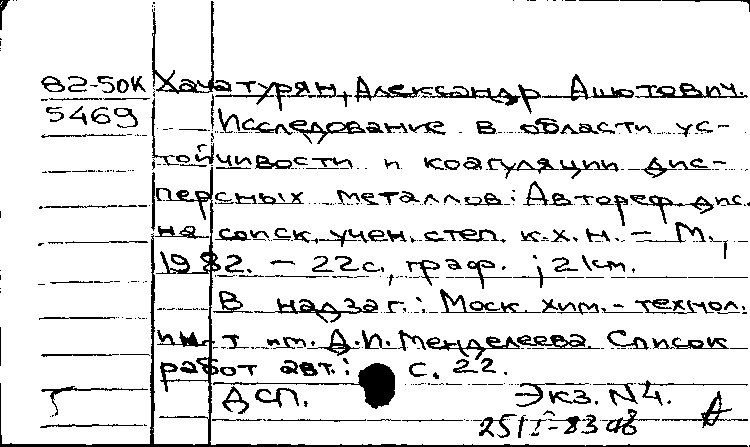 82-50К Хачатурян, Александр Ашотович.
5469 Исследование в области ус-
тойчивости и коагуляции дис-
персных металлов: Автореф. дис.
на соиск. учен. степ. к.х.н. - М.,
1982. - 22с., граф. ; 21см.
В надзаг.: Моск. хим.-технол.
ин-т им. Д.И. Менделеева. Список
работ авт.: с. 22.
ДСП. Экз. N4.